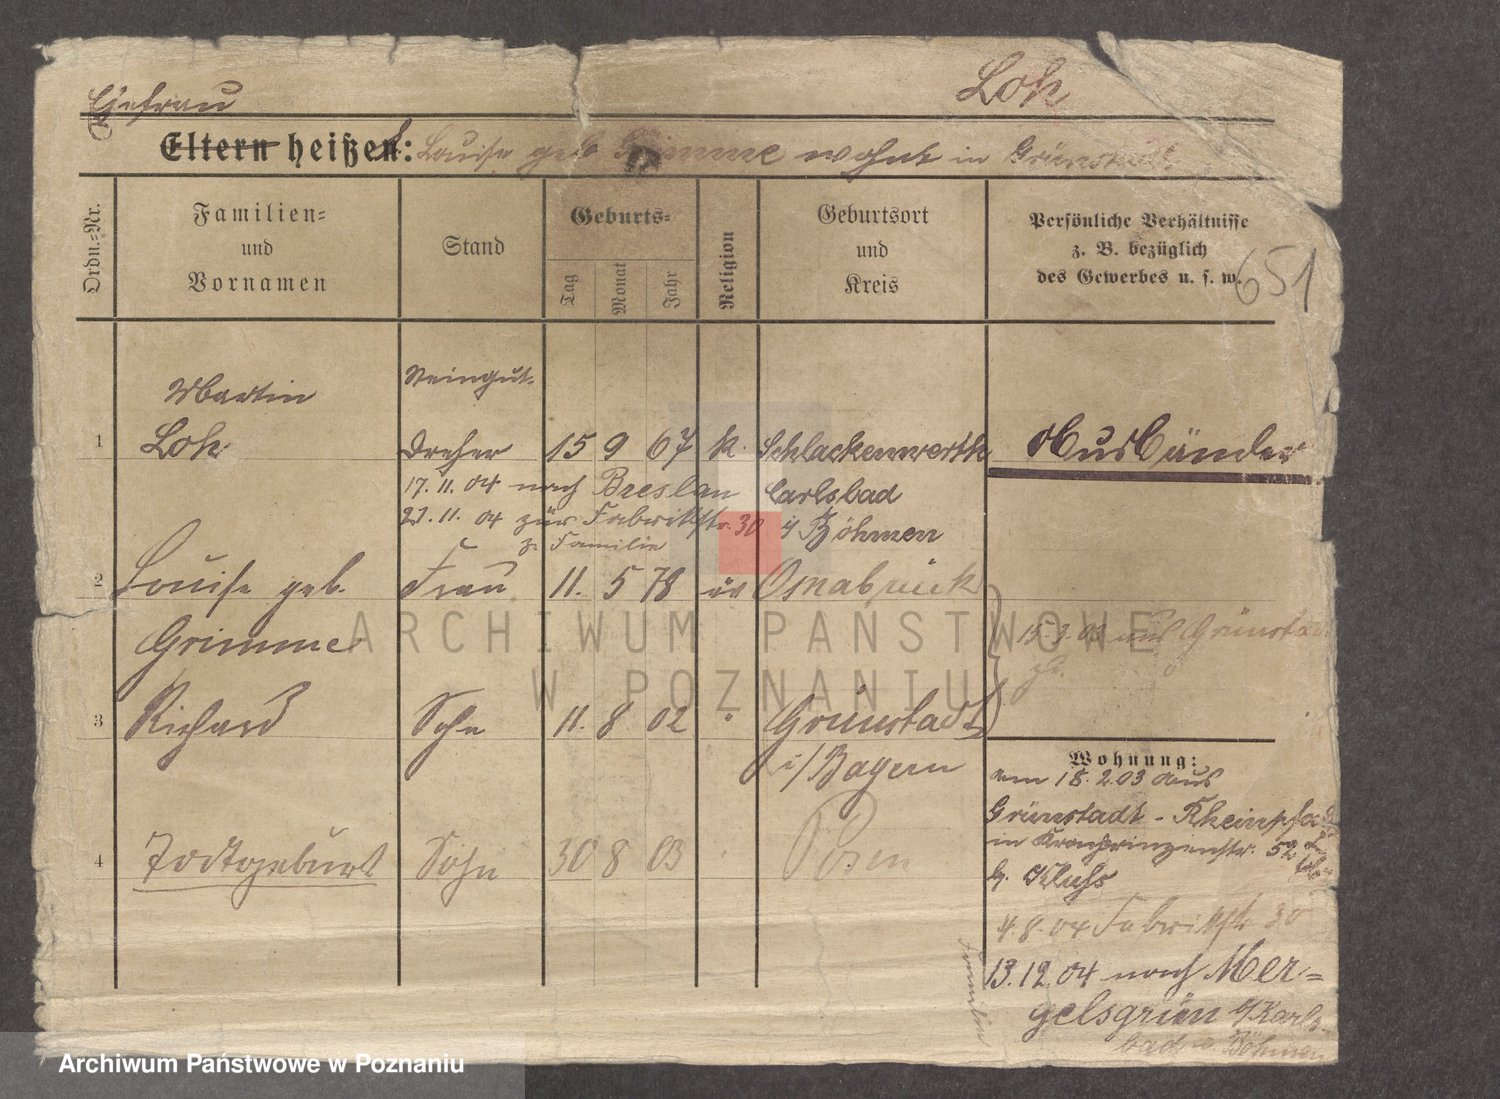 Loh
Ehefrau
Eltern heißen: Louise geb Grimme wohnt in Grünstadt
Ordn.-Nr.
Familien-
und
Vornamen
Stand
Geburts-
Tag
Monat
Jahr
Religion
Geburtsort
und
Kreis
Persönliche Verhältnisse
z. B. bezüglich
des Gewerbes u. s. w.
651
Martin
Steingut-
1 Loh Dreher 15 9 67 k. Schlackenwerth Ausländer
17.11.04 nach Breslau Carlsbad
21.11.04 zür Fabrikstr. 30 i/ Böhmen
z. Familie
2 Louise geb. Frau 11. 5 78 ev Osnabrück
Grimme
15.2.03 aus Grünstadt
3 Richard Sohn 11. 8 02 " Grünstadt
i/Bayern
4 Todtgeburt Sohn 30 8 03 Posen
Wohnung:
am 18.2.03 aus
Grünstadt - Rheinpfalz
in Kronprinzenstr. 52
b. Kluhs
4.8.04 Fabrikstr 30
13.12.04 nach Mer-
gelsgrün b/Karls-
bad in Böhmen
ARCHIWUM PAŃSTWOWE
W POZNANIU
Archiwum Państwowe w Poznaniu